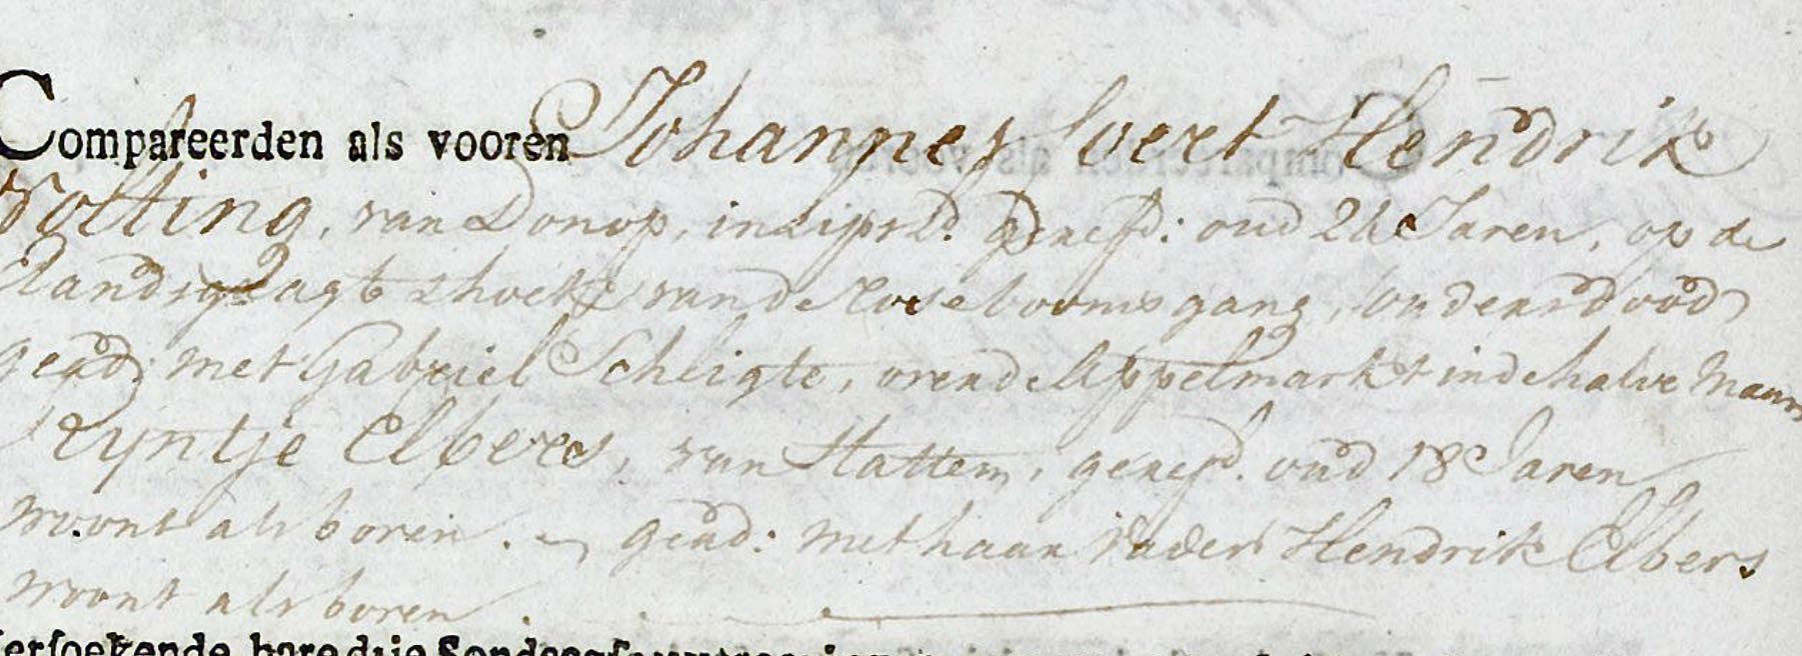 Compareerden als vooren Johannes Hendrik
Nolting, van Donop, in Lipsd. geref: oud 24 Jaren, op de
Zandhoek van de Roseboomsgang, ouders dood
geads: met Gabriel Schligte, over de Appelmarkt in de halve Maan
Ryntje Elbers, van Hattem, geref. oud 18 Jaren
woont als boven. gead: met haar Vader Hendrik Elbers
woont als boven.
Versoekende hare drie Sondaegse